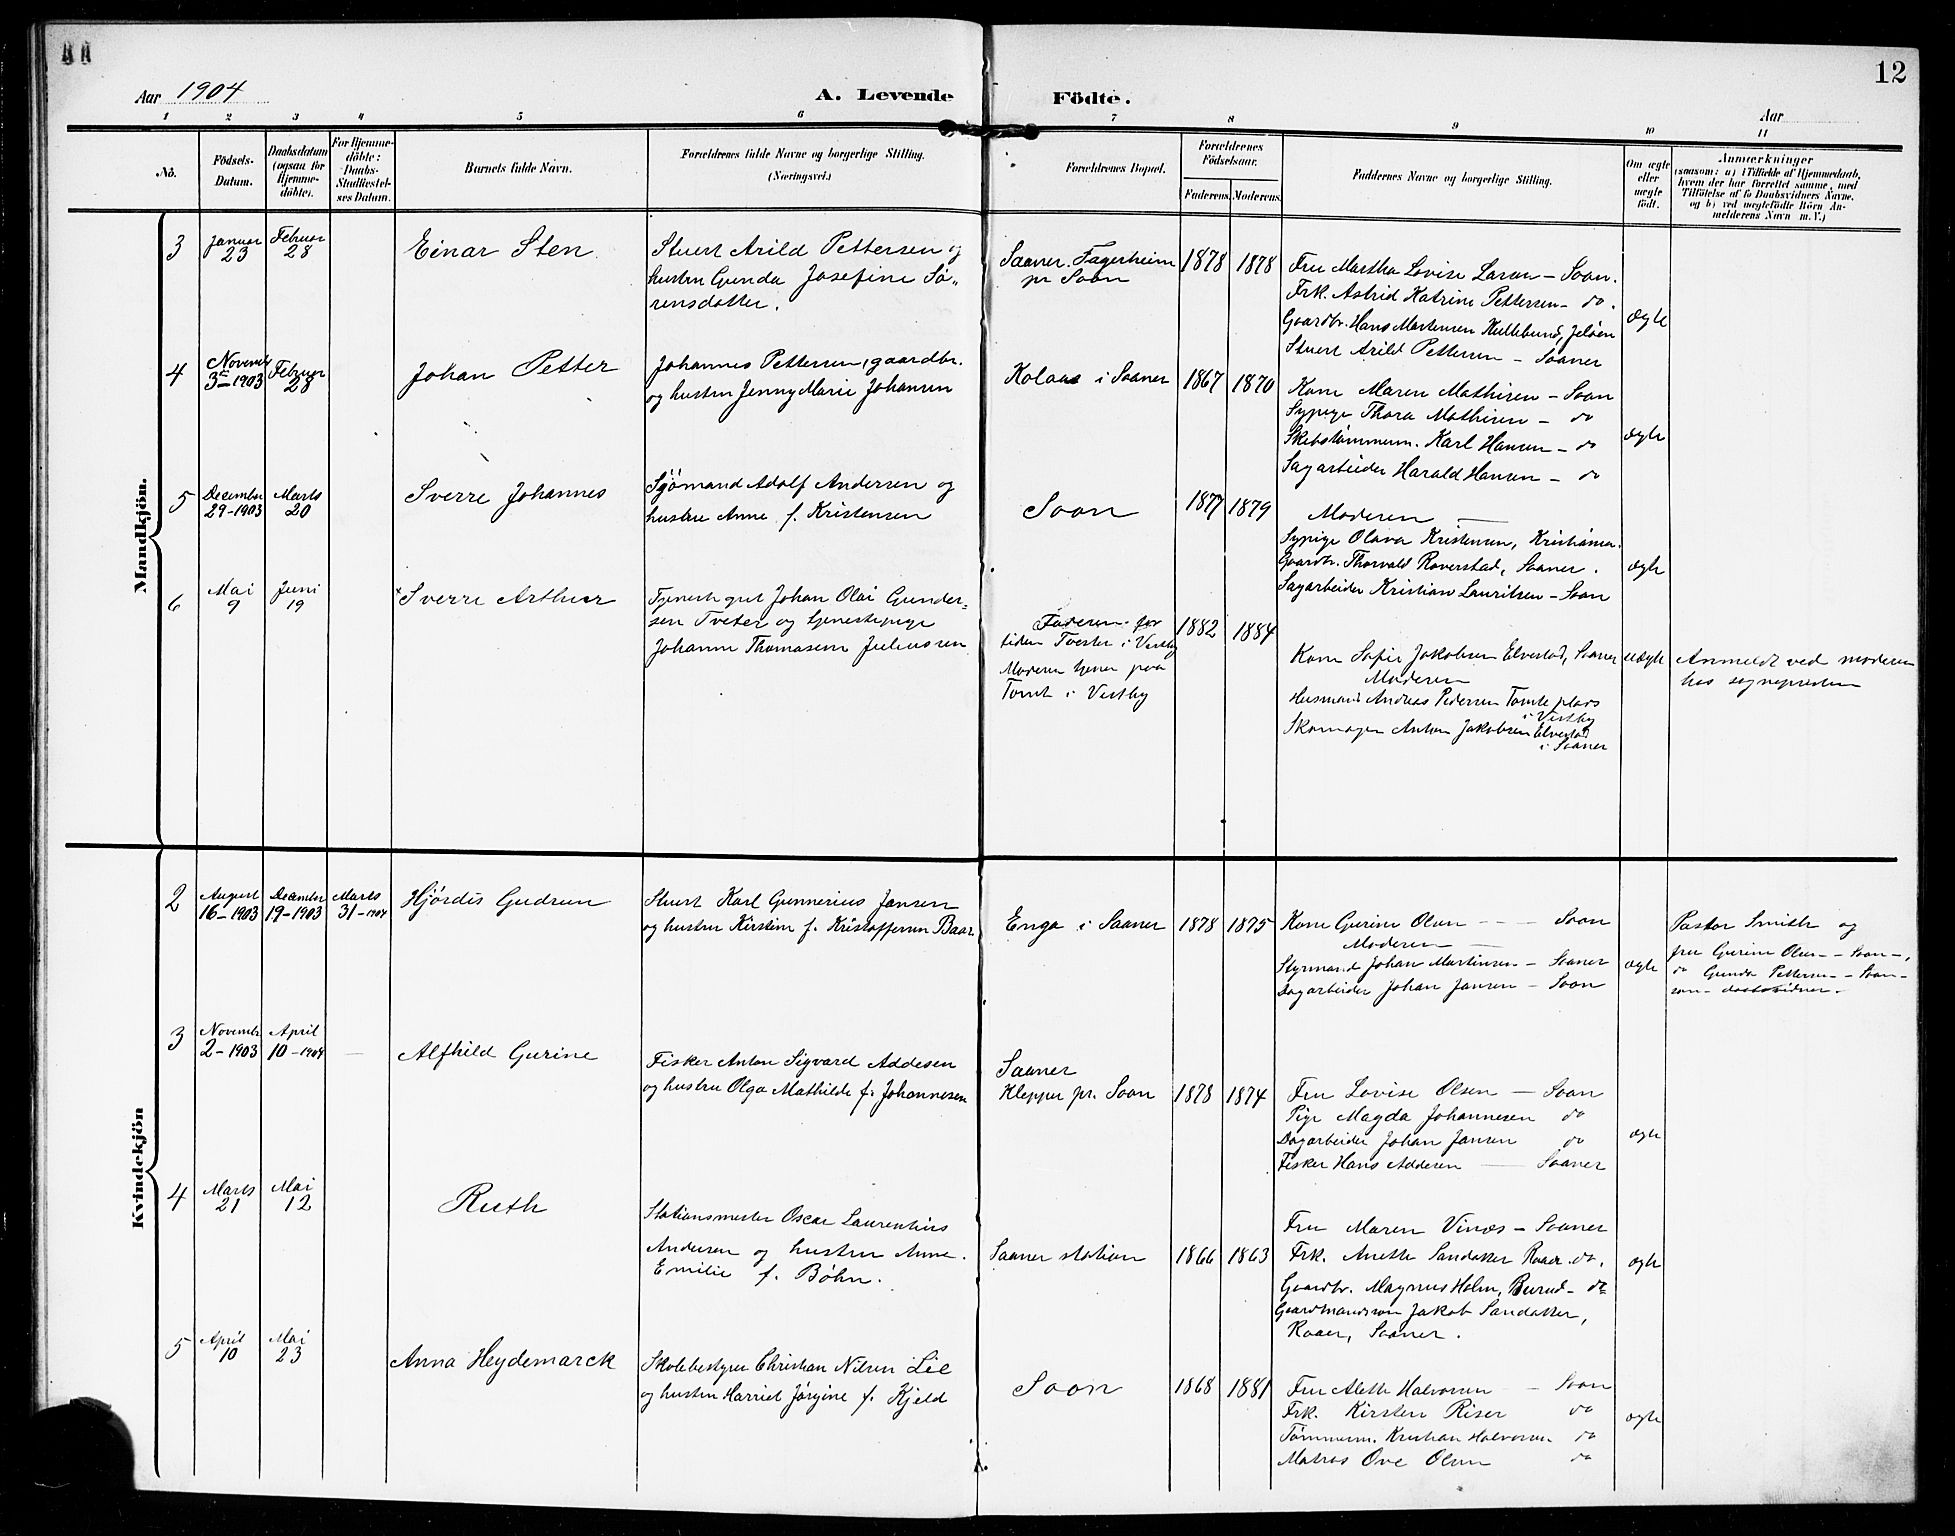 12
Aar 1904
A. Levende
Födte.
Aar
1 2 3 4 5 6 7 8 9 10 11
No.
Födsels-
Datum.
Daabsdatum
(ogsaa for
Hjemme-
döbte).
For Hjemme-
döbte:
Daabs-
Stadfæstel-
ses Datum.
Barnets fulde Navn.
Forældrenes fulde Navne og borgerlige Stilling.
(Næringsvei.)
Forældrenes Bopæl.
Forældrenes
Födselsaar.
Faderens. Moderens.
Faddernes Navne og borgerlige Stilling.
Om ægte
eller
uægte
födt.
Anmærkninger
(saasom: a) i Tilfælde af Hjemmedaab,
hvem der har forrettet samme, med
Tilföielse af to Daabsvidners Navne,
og b) ved uægtefödte Börn An-
melderens Navn m. V.)
Mandkjön.
3
Januar
23
Februar
28
Einar Sten
Stuert Arild Pettersen og
hustru Gunda Josefine Sø-
rensdatter.
Saaner. Fagerheim
pr Soon
1878 1878
Fru Martha Lovise Larsen – Soon.
Frk. Astrid Katrine Pettersen – do.
Gaardbr. Hans Martinsen Kullebund, Jeløen
Stuert Arild Pettersen – Saaner
ægte
4
November
3 – 1903
Februar
28
Johan Petter
Johannes Pettersen, gaardbr.
og hustru Jenny Marie Johansen
Kolaas i Saaner
1867 1870
Kone Maren Mathisen – Soon
Sypige Thora Mathisen – do
Skibstømmerm. Karl Hansen – do
Sagarbeider Harald Hansen – do
ægte
5
December
29 – 1903
Marts
20
Sverre Johannes
Sjømand Adolf Andersen og
hustru Anne f. Kristensen
Soon
1877 1879
Moderen
Sypige Olava Kristensen, Kristiania.
Gaardbr. Thorvald Raverstad, Saaner.
Sagarbeider Kristian Lauritsen – Soon
ægte
6
Mai
9
Juni
19
Sverre Arthur
Tjenestegut Johan Olai Gunder-
sen Tveter og tjenestepige
Johanne Thomasem Juliussen
Faderen for
tiden Tveter i Vestby
Moderen tjener paa
Tomt i Vestby
1882 1884
Kone Sofie Jakobsen Elvestad, Saaner
Moderen
Husmand Andreas Pedersen Tomte plads
i Vestby
Skomager Anton Jakobsen Elvestad
i Saaner
uægte
Anmeldt ved moderen
hos sognepresten
Kvindekjön
2
August
16 – 1903
December
19 – 1903
Marts
31 – 1904
Hjørdis Gudrun
Stuert Karl Gunnerius Jansen
og hustru Kirstine f. Kristoffersen Baar.
Enga i Saaner
1878 1875
Kone Gurine Olsen – – – Soon
Moderen
Styrmand Johan Martinsen – Saaner
Dagarbeider Johan Jansen – Soon
ægte
Pastor Smith og
fru Gurine Olsen – Soon –,
do Gunda Pettersen – Soon –
som daabsvidner –
3
November
2 – 1903
April
10 – 1904
Alfhild Gurine
Fisker Anton Sigvard Addesen
og hustru Olga Mathilde f. Johannesen
Saaner
Klepper pr. Soon
1878 1874
Fru Lovise Olsen – Soon
Pige Magda Johannesen do
Dagarbeider Johan Jansen do
Fisker Hans Addesen – Saaner
ægte
4
Marts
21
Mai
12
Ruth
Stationsmester Oscar Laurentius
Andersen og hustru Anne
Emilie f. Bøhn.
Saaner station
1866 1863
Fru Maren Vinæs – Saaner
Frk. Anette Sandaker Raaer do.
Gaardbr. Magnus Holm, Burud – do
Gaardmandssøn Jakob Sandaker,
Raaer, Saaner.
ægte
5
April
10
Mai
23
Anna Heydemarck
Skolebestyrer Christian Nilsen Lie
og hustru Harriet Jørgine f. Kjeld
Soon
1868 1881
Fru Alette Halvorsen – Soon
Frk. Kirsten Riser do
Tømmerm. Kristian Halvorsen do
Matros Ove Olsen do
ægte